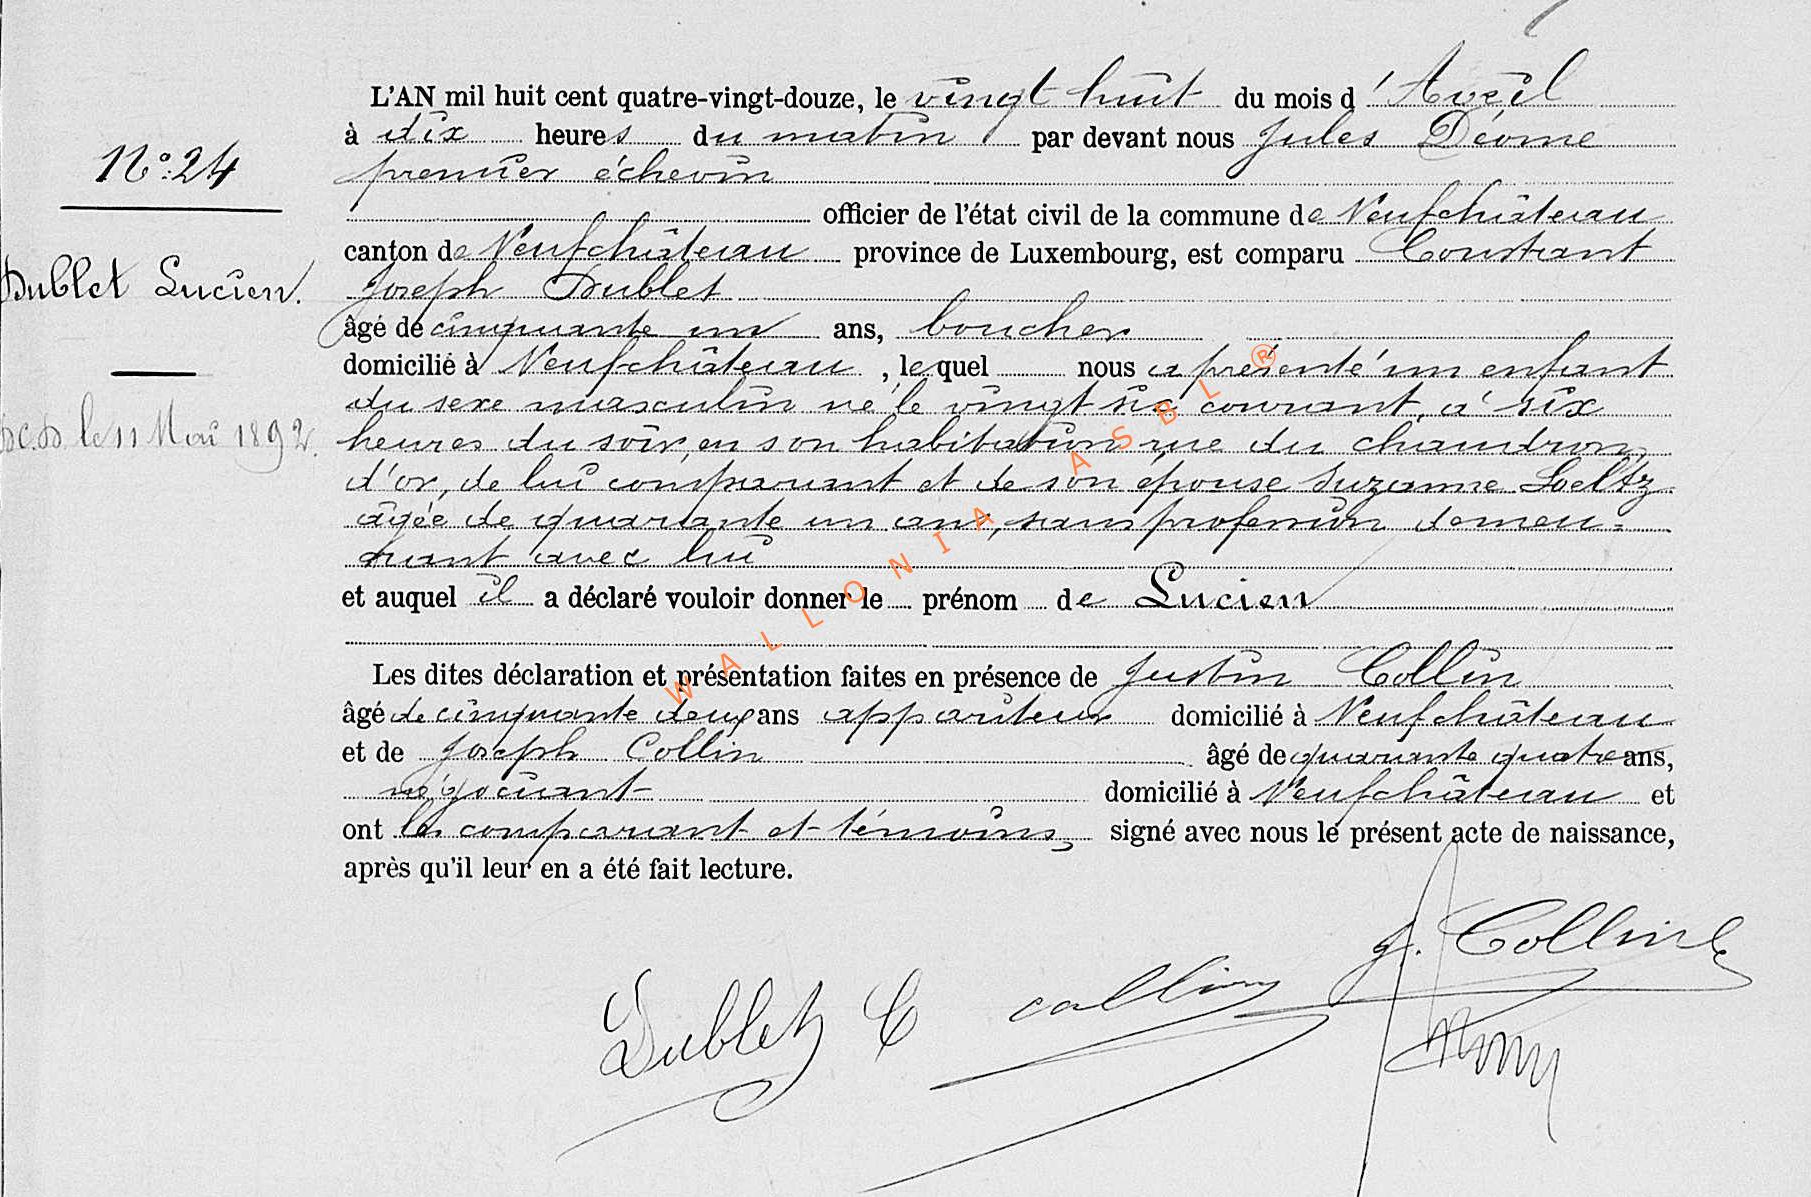 L'AN mil huit cent quatre-vingt-douze, le vingt huit du mois d'Avril
à dix heures du matin par devant nous Jules Déome
premier échevin
officier de l'état civil de la commune de Neufchâteau
canton de Neufchâteau province de Luxembourg, est comparu Constant
Joseph Dublet
âgé de cinquante un ans, boucher
domicilié à Neufchâteau, lequel nous a présenté un enfant
du sexe masculin né le vingt six courant, à six
heures du soir, en son habitation rue du chaudron
d'or, de lui comparant et de son épouse Suzanne Loeltz
âgée de quarante un ans, sans profession demeu=
rant avec lui
et auquel il a déclaré vouloir donner le prénom de Lucien
Les dites déclaration et présentation faites en présence de Justin Collin
âgé de cinquante deux ans appariteur domicilié à Neufchâteau
et de Joseph Collin âgé de quarante quatre ans,
négociant domicilié à Neufchâteau et
ont les comparant et témoins signé avec nous le présent acte de naissance,
après qu'il leur en a été fait lecture.
N° 24
Dublet Lucien.
le 11 Mai 1892.
WALLONIA ASBL ®
J. Collin
Dublet C collin